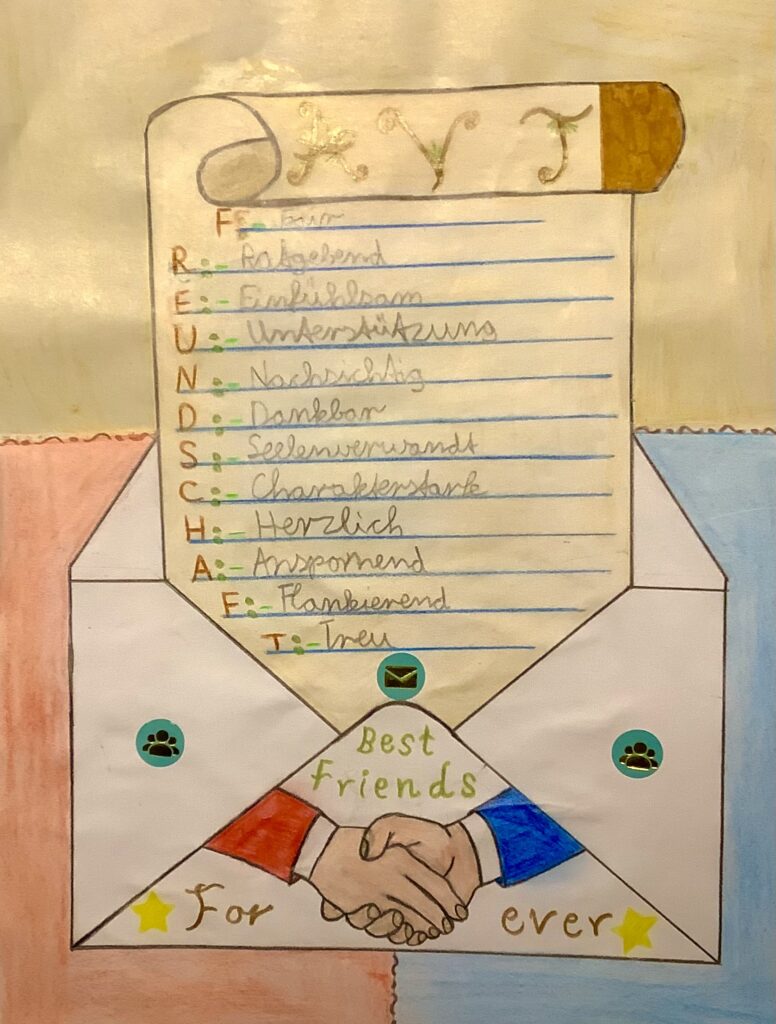 A Y T
F:- Fair
R:- Ratgebend
E:- Einfühlsam
U:- Unterstützung
N:- Nachsichtig
D:- Dankbar
S:- Seelenverwandt
C:- Charakterstark
H:- Herzlich
A:- Anspornend
F:- Flankierend
T:- Treu
Best
Friends
For ever